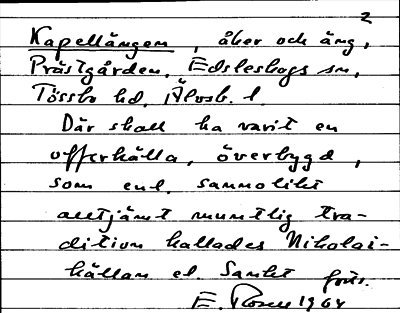 2
Kapellängen, åker och äng,
Prästgården, Edslesbogs sn,
Tössbo hd, Älvsb. l.
Där skall ha varit en
offerkälla, överbygd,
som enl. sannolikt
alltjämt muntlig tra-
dition kallades Nikolai-
källan el. Sankt
E. Rosell 1964